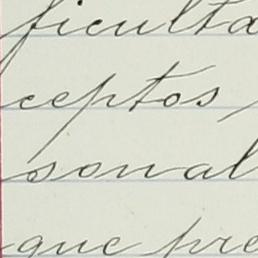 ficulta
ceptos,
sonal
que pre